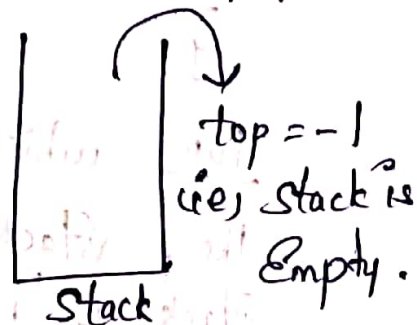 top = -1
(ie) Stack is
Empty.
Stack